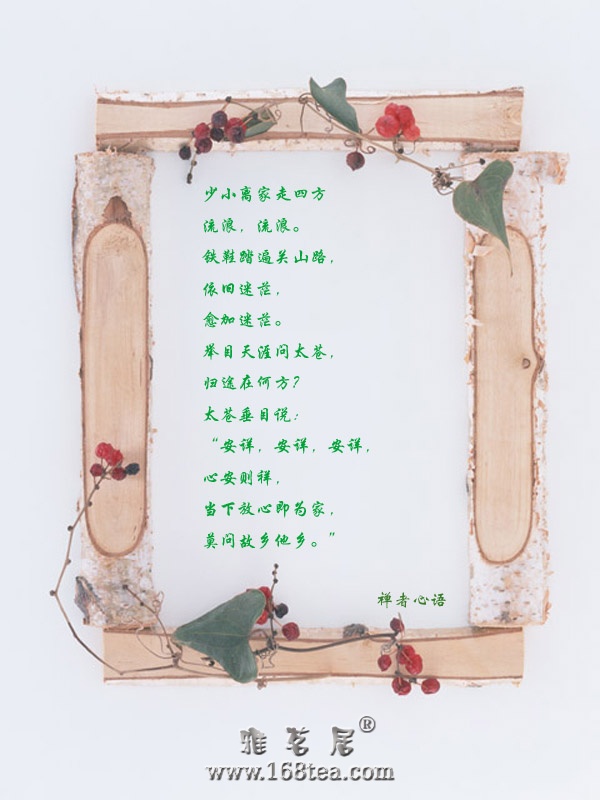 少小离家走四方
流浪，流浪。
铁鞋踏遍关山路，
依旧迷茫，
愈加迷茫。
举目天涯问太苍，
归途在何方？
太苍垂目说：
“安详，安详，安详，
心安则祥，
当下放心即为家，
莫问故乡他乡。”
禅者心语
雅茗居®
www.168tea.com